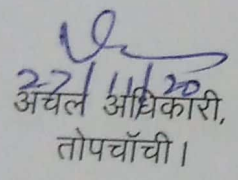 22/11/20
अंचल अधिकारी,
तोपचाँची।